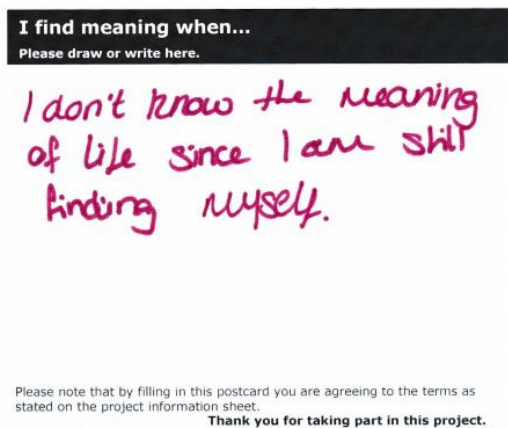 I find meaning when...
Please draw or write here.
I don't know the meaning
of life since I am still
finding myself.
Please note that by filling in this postcard you are agreeing to the terms as
stated on the project information sheet.
Thank you for taking part in this project.